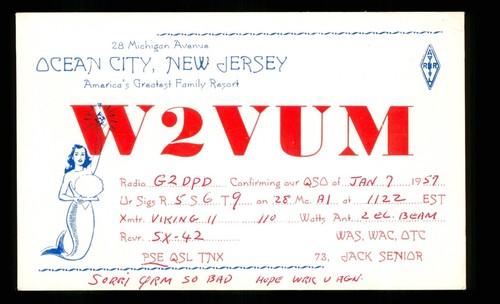 28 Michigan Avenue
OCEAN CITY, NEW JERSEY
America's Greatest Family Resort
ARRL
W2VUM
Radio G2DPD Confirming our QSO of JAN 7 1957
Ur Sigs R 5 S 6 T 9 on 28 Mc. A1 at 1122 EST
Xmtr. VIKING II 110 Watts Ant. 2 EL. BEAM
Rcvr. SX-42 WAS, WAC, OTC
PSE QSL TNX 73, JACK SENIOR
SORRI QRM SO BAD HOPE WRK U AGN.